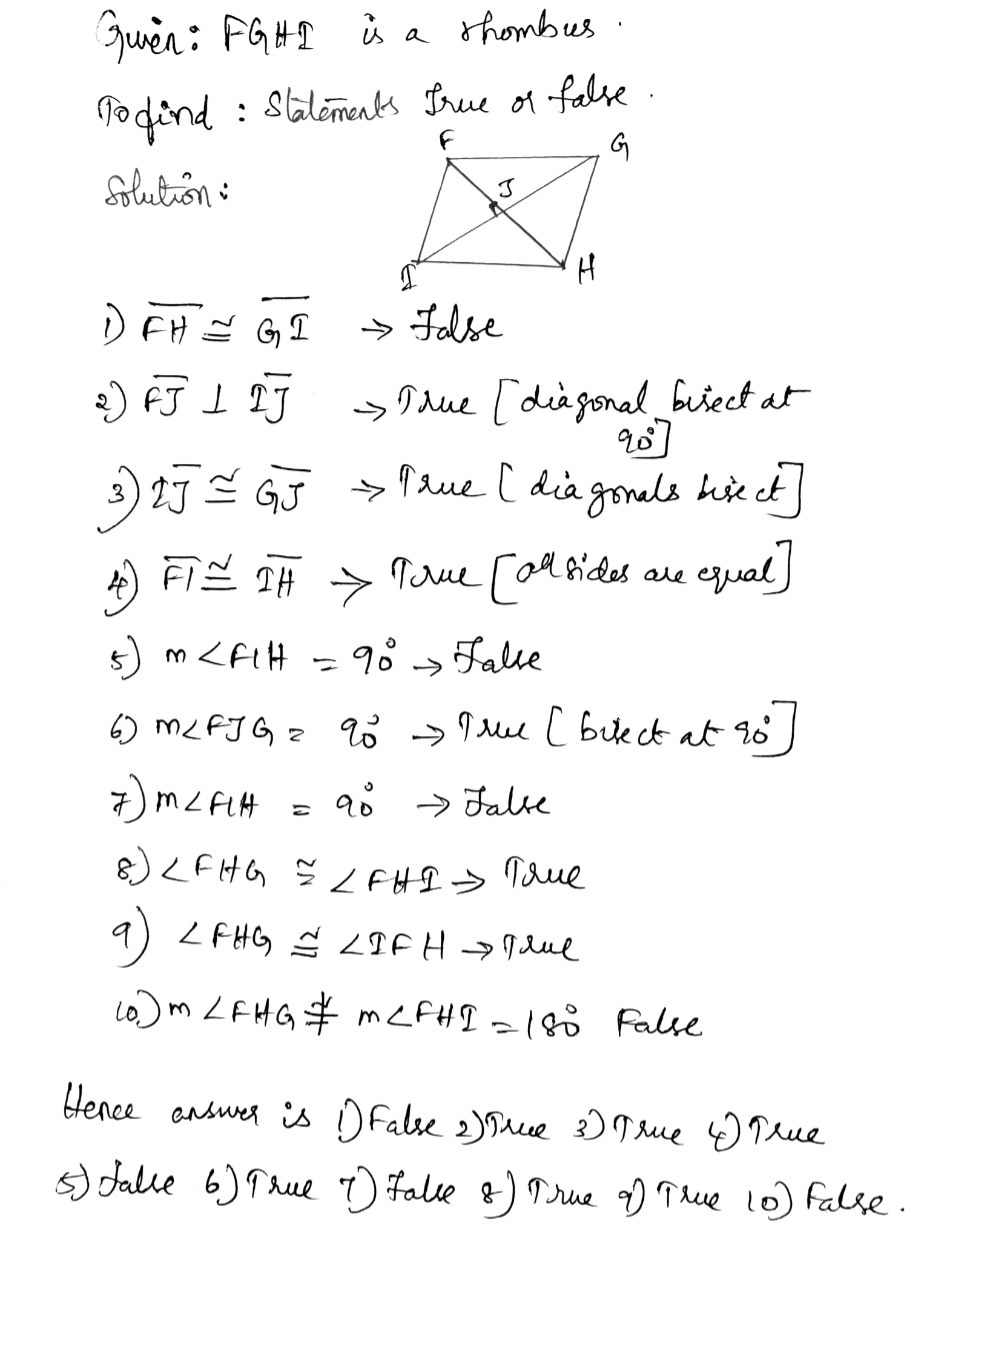 Given: FGHI is a rhombus.
To find: Statements True or false.
F
G
Solution:
J
I
H
1) FH ≅ GI → False
2) FJ ⊥ IJ → True [diagonal bisect at
90°]
3) IJ ≅ GJ → True [diagonals bisect]
4) FI ≅ IH → True [all sides are equal]
5) m∠FIH = 90° → False
6) m∠FJG = 90° → True [bisect at 90°]
7) m∠FIH = 90° → False
8) ∠FHG ≅ ∠FHI → True
9) ∠FHG ≅ ∠IFH → True
10) m∠FHG ≠ m∠FHI = 180° False
Hence answer is 1) False 2) True 3) True 4) True
5) False 6) True 7) False 8) True 9) True 10) False.